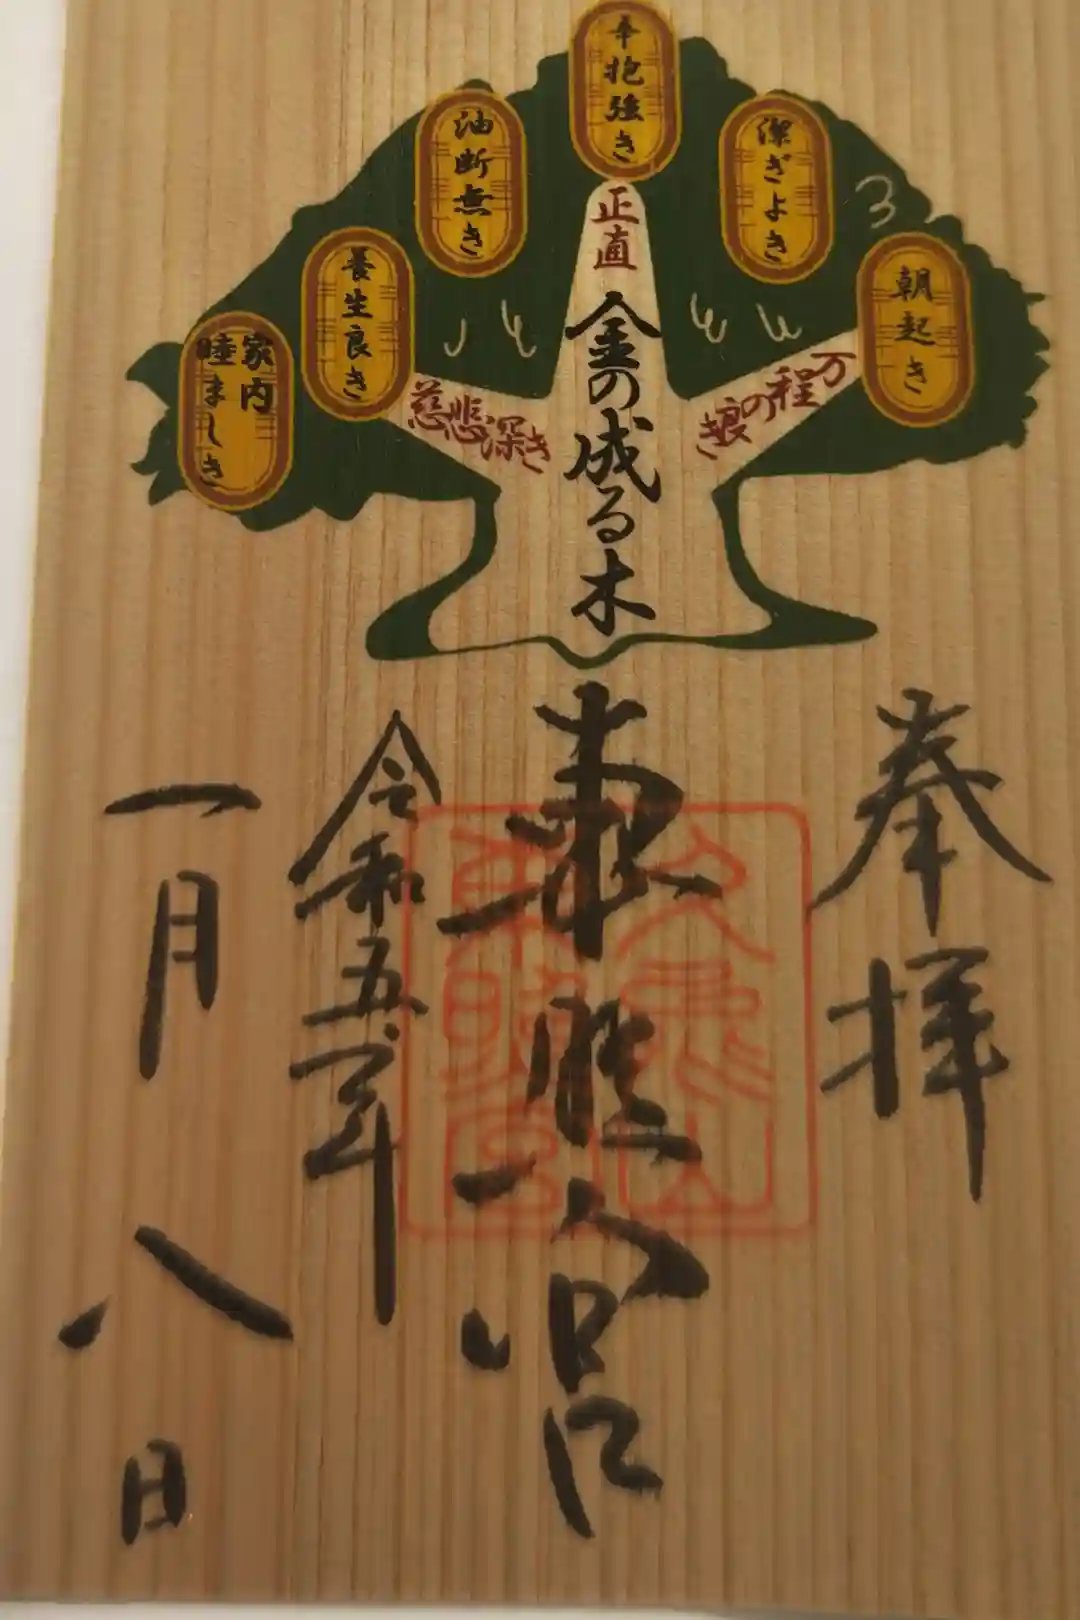 辛抱強き
潔ぎよき
朝起き
油断無き
養生良き
家内
睦ましき
正直
万の程の良き
慈悲深き
金の成る木
奉拝
東照宮
令和五年
一月八日
久能山
東照宮